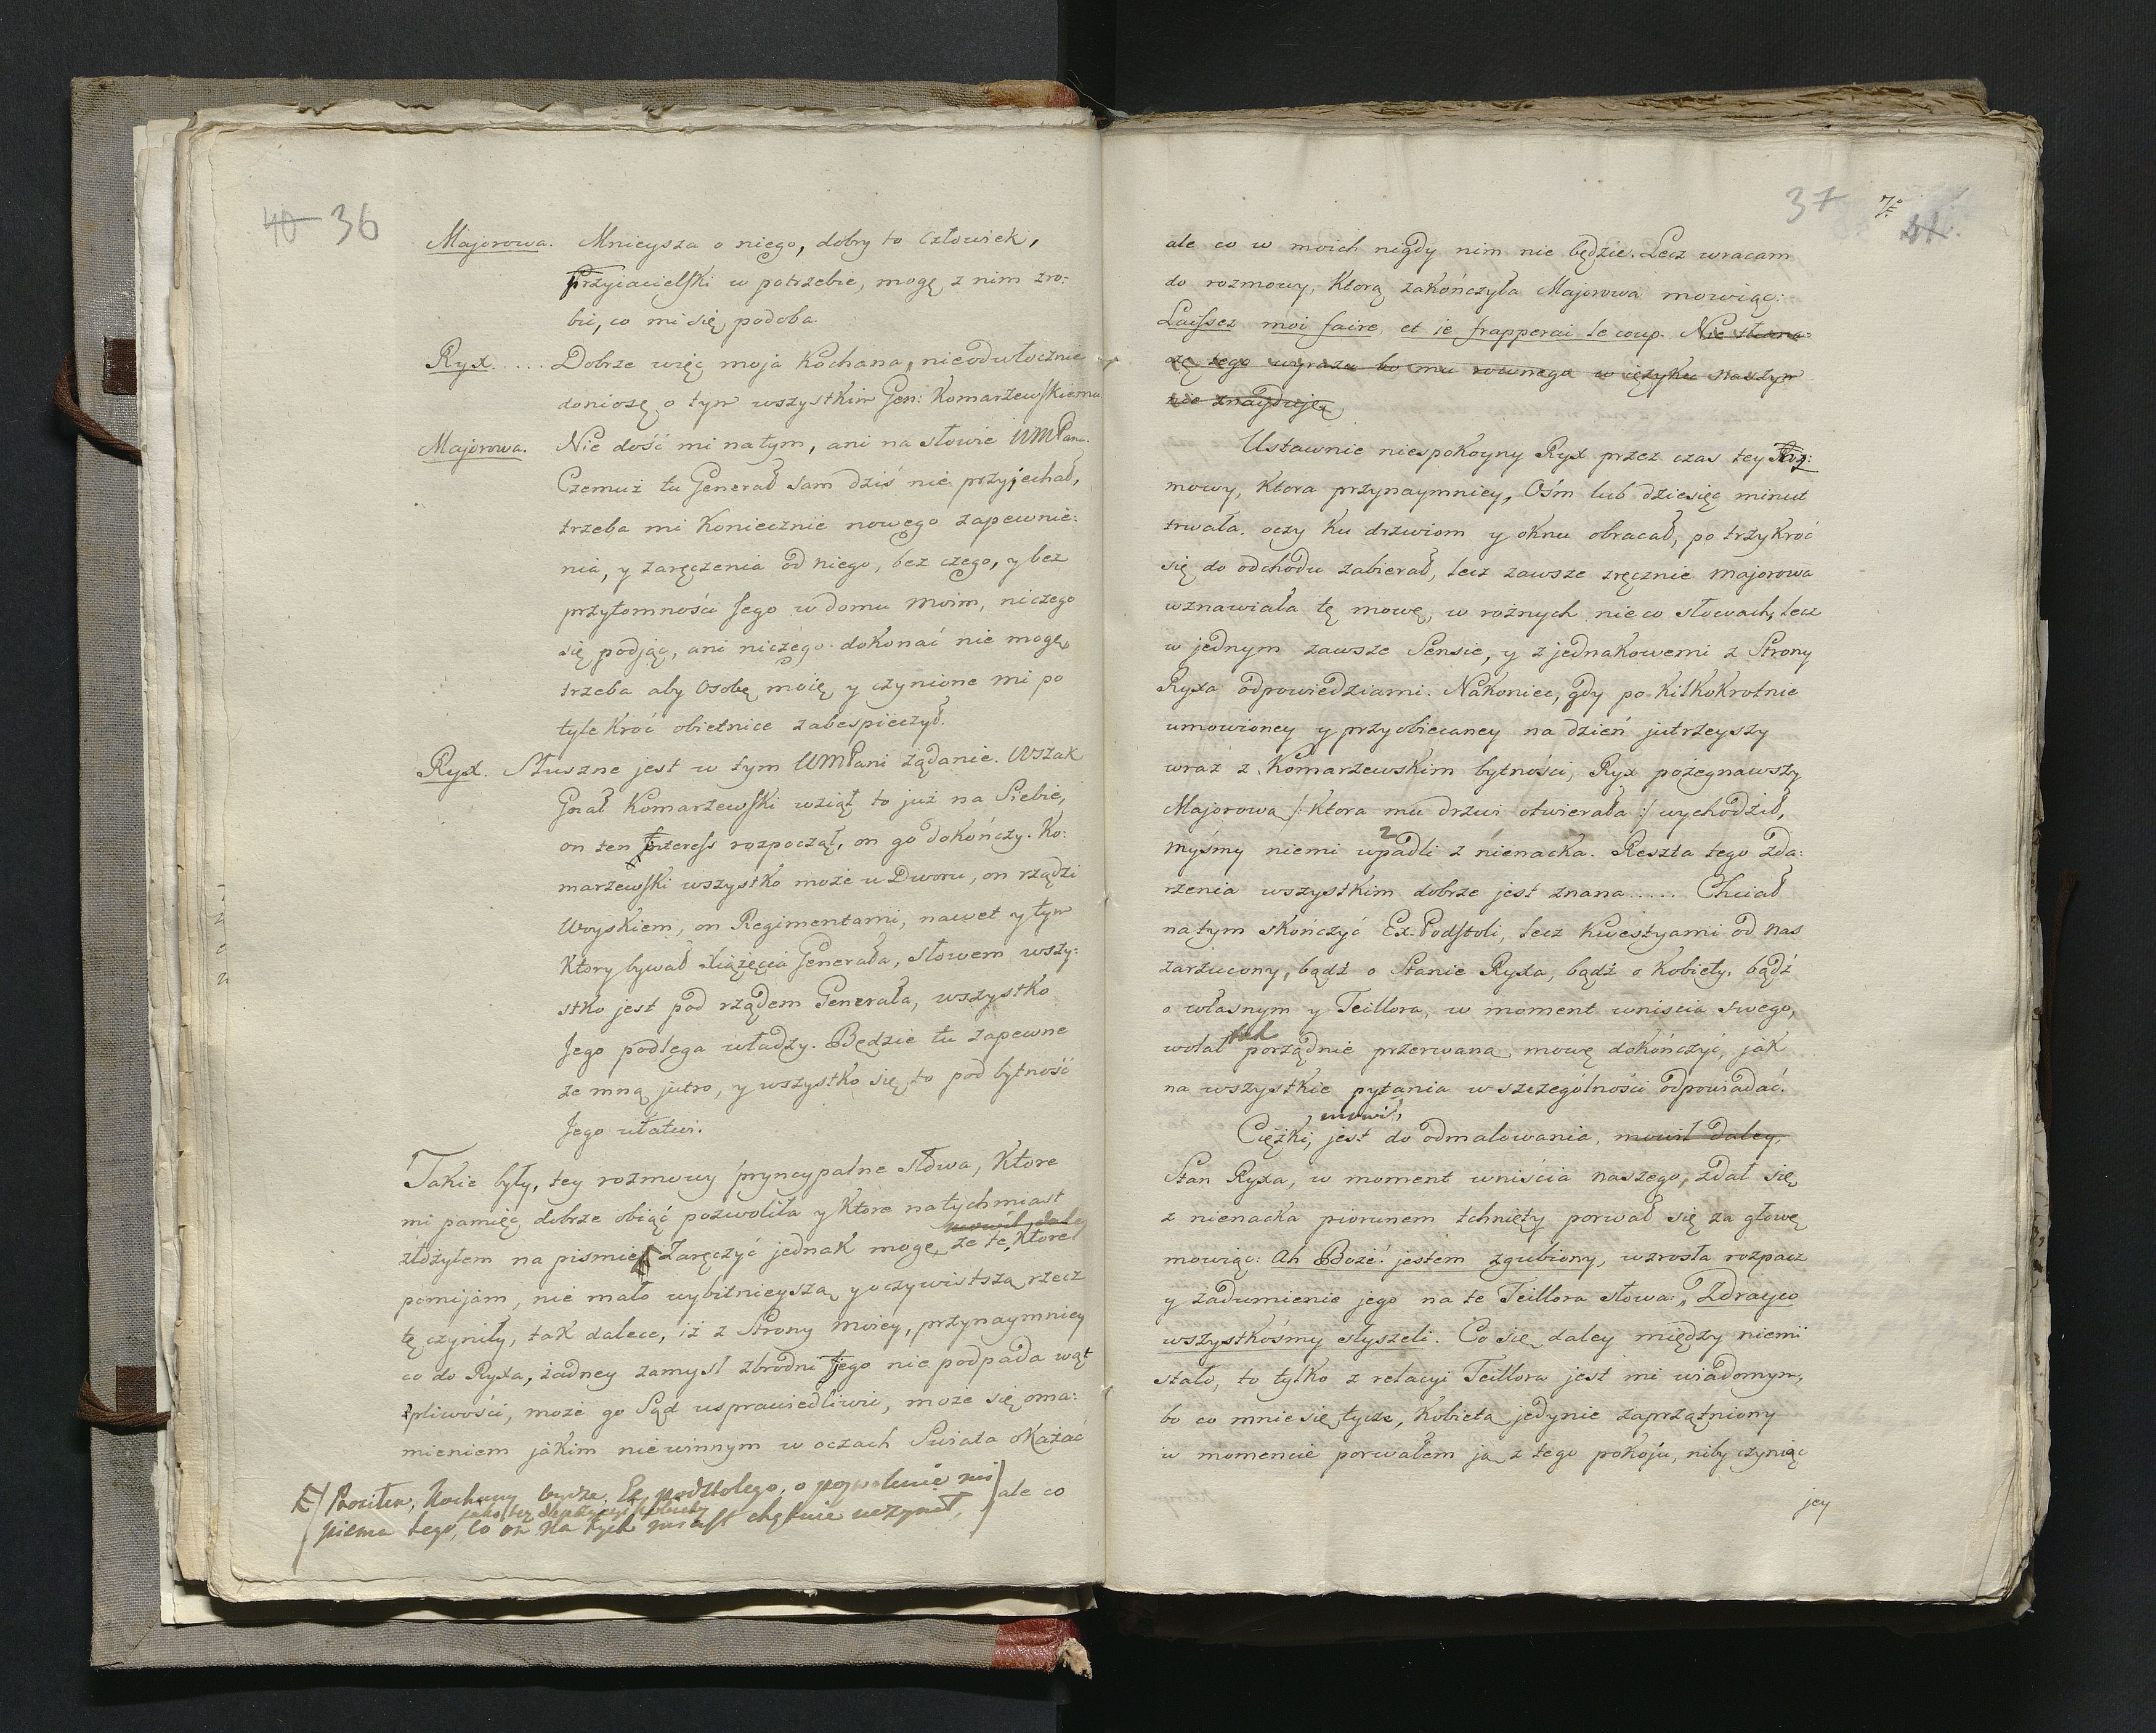 40 36
Majorowa. Mnieysza o niego, dobry to Człowiek,
Przyiacielski w potrzebie, mogę z nim zro:
bić, co mi się podoba.
Ryx. .... Dobrze więc moja Kochana, nieodwłocznie
doniosę o tym wszystkim Gen: Komarzewskiemu
Majorowa. Nie dość mi na tym, ani na słowie WMPana.
Czemuż tu Generał sam dziś nie przyjechał,
trzeba mi Koniecznie nowego zapewnie:
nia, y zaręczenia od niego, bez czego, y bez
przytomności Jego w domu moim, niczego
się podjąć, ani niczego dokonać nie mogę,
trzeba aby Osobę moię y czynione mi po
tyle kroć obietnice zabespieczył.
Ryx. Słuszne jest w tym WMPani żądanie. Wszak
Gnał Komarzewski wziął to już na Siebie,
on ten Interess rozpoczął, on go dokończy. Ko:
marzewski wszystko może u Dworu, on rządzi
Woyskiem, on Regimentami, nawet y tym
Ktory bywał Xiążęcia Generała, słowem wszy:
stko jest pod rządem Generała, wszystko
Jego podlega władzy. Będzie tu zapewne
ze mną jutro, y wszystko się to pod bytność
Jego ułatwi.
Takie były, tey rozmowy pryncypalne słowa, Ktore
mi pamięć dobrze obiąć pozwoliła y Ktore natychmiast
mowił daley
złożyłem na pismie Zaręczyć jednak mogę, że te, Ktore
pomijam, nie mało wybitnieyszą y oczywistszą rzecz
tę czyniły, tak dalece, iż z Strony moiey, przynaymniey
co do Ryxa, żadney zamysł zbrodni Jego nie podpada wąt
pliwości, może go Sąd usprawiedliwić, może się oma:
mieniem jakim niewinnym w oczach Swiata okazać
Prosiłem, Kochany bracie, Ex podstolego, o pozwolenie mi
pisma tego, co on na tych miast chętnie uczynił,
ale co
37 7º 41.
ale co w moich nigdy nim nie będzie. Lecz wracam
do rozmowy, Ktorą zakończyła Majorowa mowiąc:
Laissez moi faire, et ie frapperai le coup. Nie tłoma:
czę tego wyrazu bo mu rownego w ięzyku naszym
nie znayduję,
Ustawnie niespokoyny Ryx przez czas tey Roz:
mowy, Ktora przynaymniey, Ośm lub dziesięć minut
trwała, oczy Ku drzwiom y oknu obracał, po trzykroć
się do odchodu zabierał, lecz zawsze zręcznie Majorowa
wznawiała tę mowę, w rożnych nieco słowach, lecz
w jednym zawsze Sensie, y z jednakowemi z Strony
Ryxa odpowiedziami. Nakoniec, gdy po kilkokrotnie
umowioney y przyobiecaney na dzień jutrzeyszy
wraz z Komarzewskim bytności, Ryx pożegnawszy
Majorowa /: Ktora mu drzwi otwierała :/ wychodził,
myśmy niemi wpadli z nienacka. Reszta tego zda:
rzenia wszystkim dobrze jest znana..... Chciał
na tym skończyć Ex-Podstoli, lecz kwestyami od nas
zarzucony, bądź o Stanie Ryxa, bądź o Kobiety, bądź
o własnym y Teillora, w moment wniscia swego,
wolał tak porządnie przerwaną mowę dokończyć, jak
na wszystkie pytania w szczególności odpowiadać.
mowił,
Ciężki, jest do odmalowania, mowił daley,
Stan Ryxa, w moment wniścia naszego, zdał się
z nienacka piorunem tchnięty porwał się za głowę
mowiąc: Ah Boże! jestem zgubiony, wzrosła rozpacz
y zadumienie jego na te Teillora słowa: „Zdrayco
wszystkośmy słyszeli. Co się daley między niemi
stało, to tylko z relacyi Teillora jest mi wiadomym,
bo co mnie się tycze, Kobieta jedynie zaprzątniony
w momencie porwałem ją z tego pokoju, niby czyniąc
jey